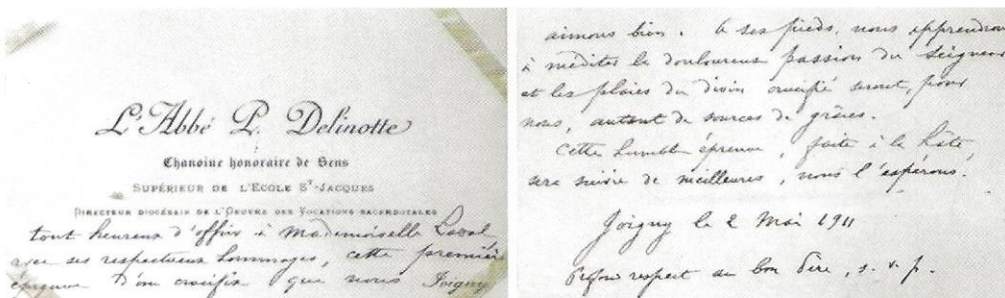 L'Abbé P. Delinotte
Chanoine honoraire de Sens
SUPÉRIEUR DE L'ECOLE St-JACQUES
DIRECTEUR DIOCÉSAIN DE L'OEUVRE DES VOCATIONS SACERDOTALES
tout heureux d'offrir à Mademoiselle Laval
avec ses respectueux hommages, cette première
épreuve d'un crucifix que nous Joigny
aimons bien. à ses pieds, nous apprendrons
à méditer la douloureuse passion du Seigneur
et les plaies du divin crucifié seront, pour
nous, autant de sources de grâces.
Cette humble épreuve, faite à la hâte,
sera suivie de meilleures, nous l'espérons.
Joigny le 2 Mai 1911
respect au bon Père, s. v. p.